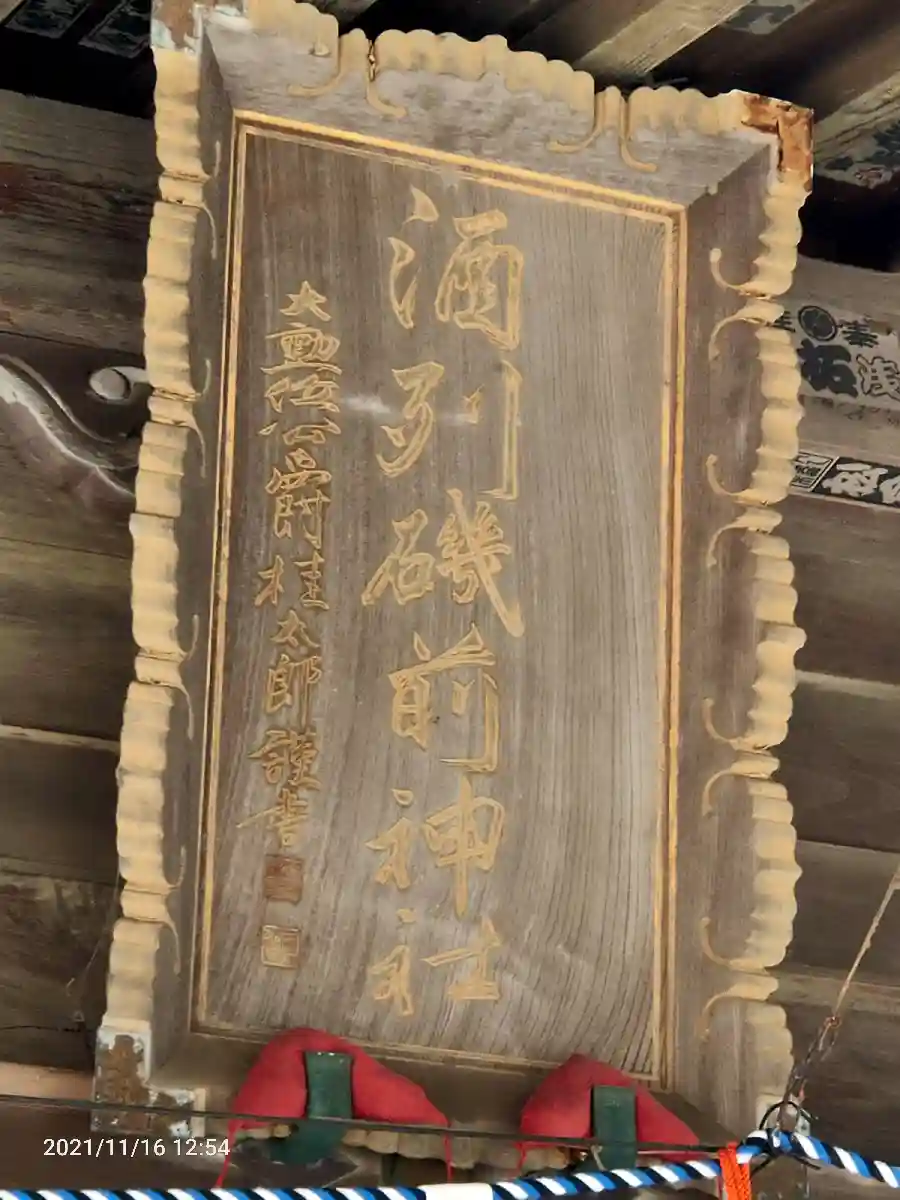 酒列磯前神社
大勲位公爵桂太郎謹書
2021/11/16 12:54